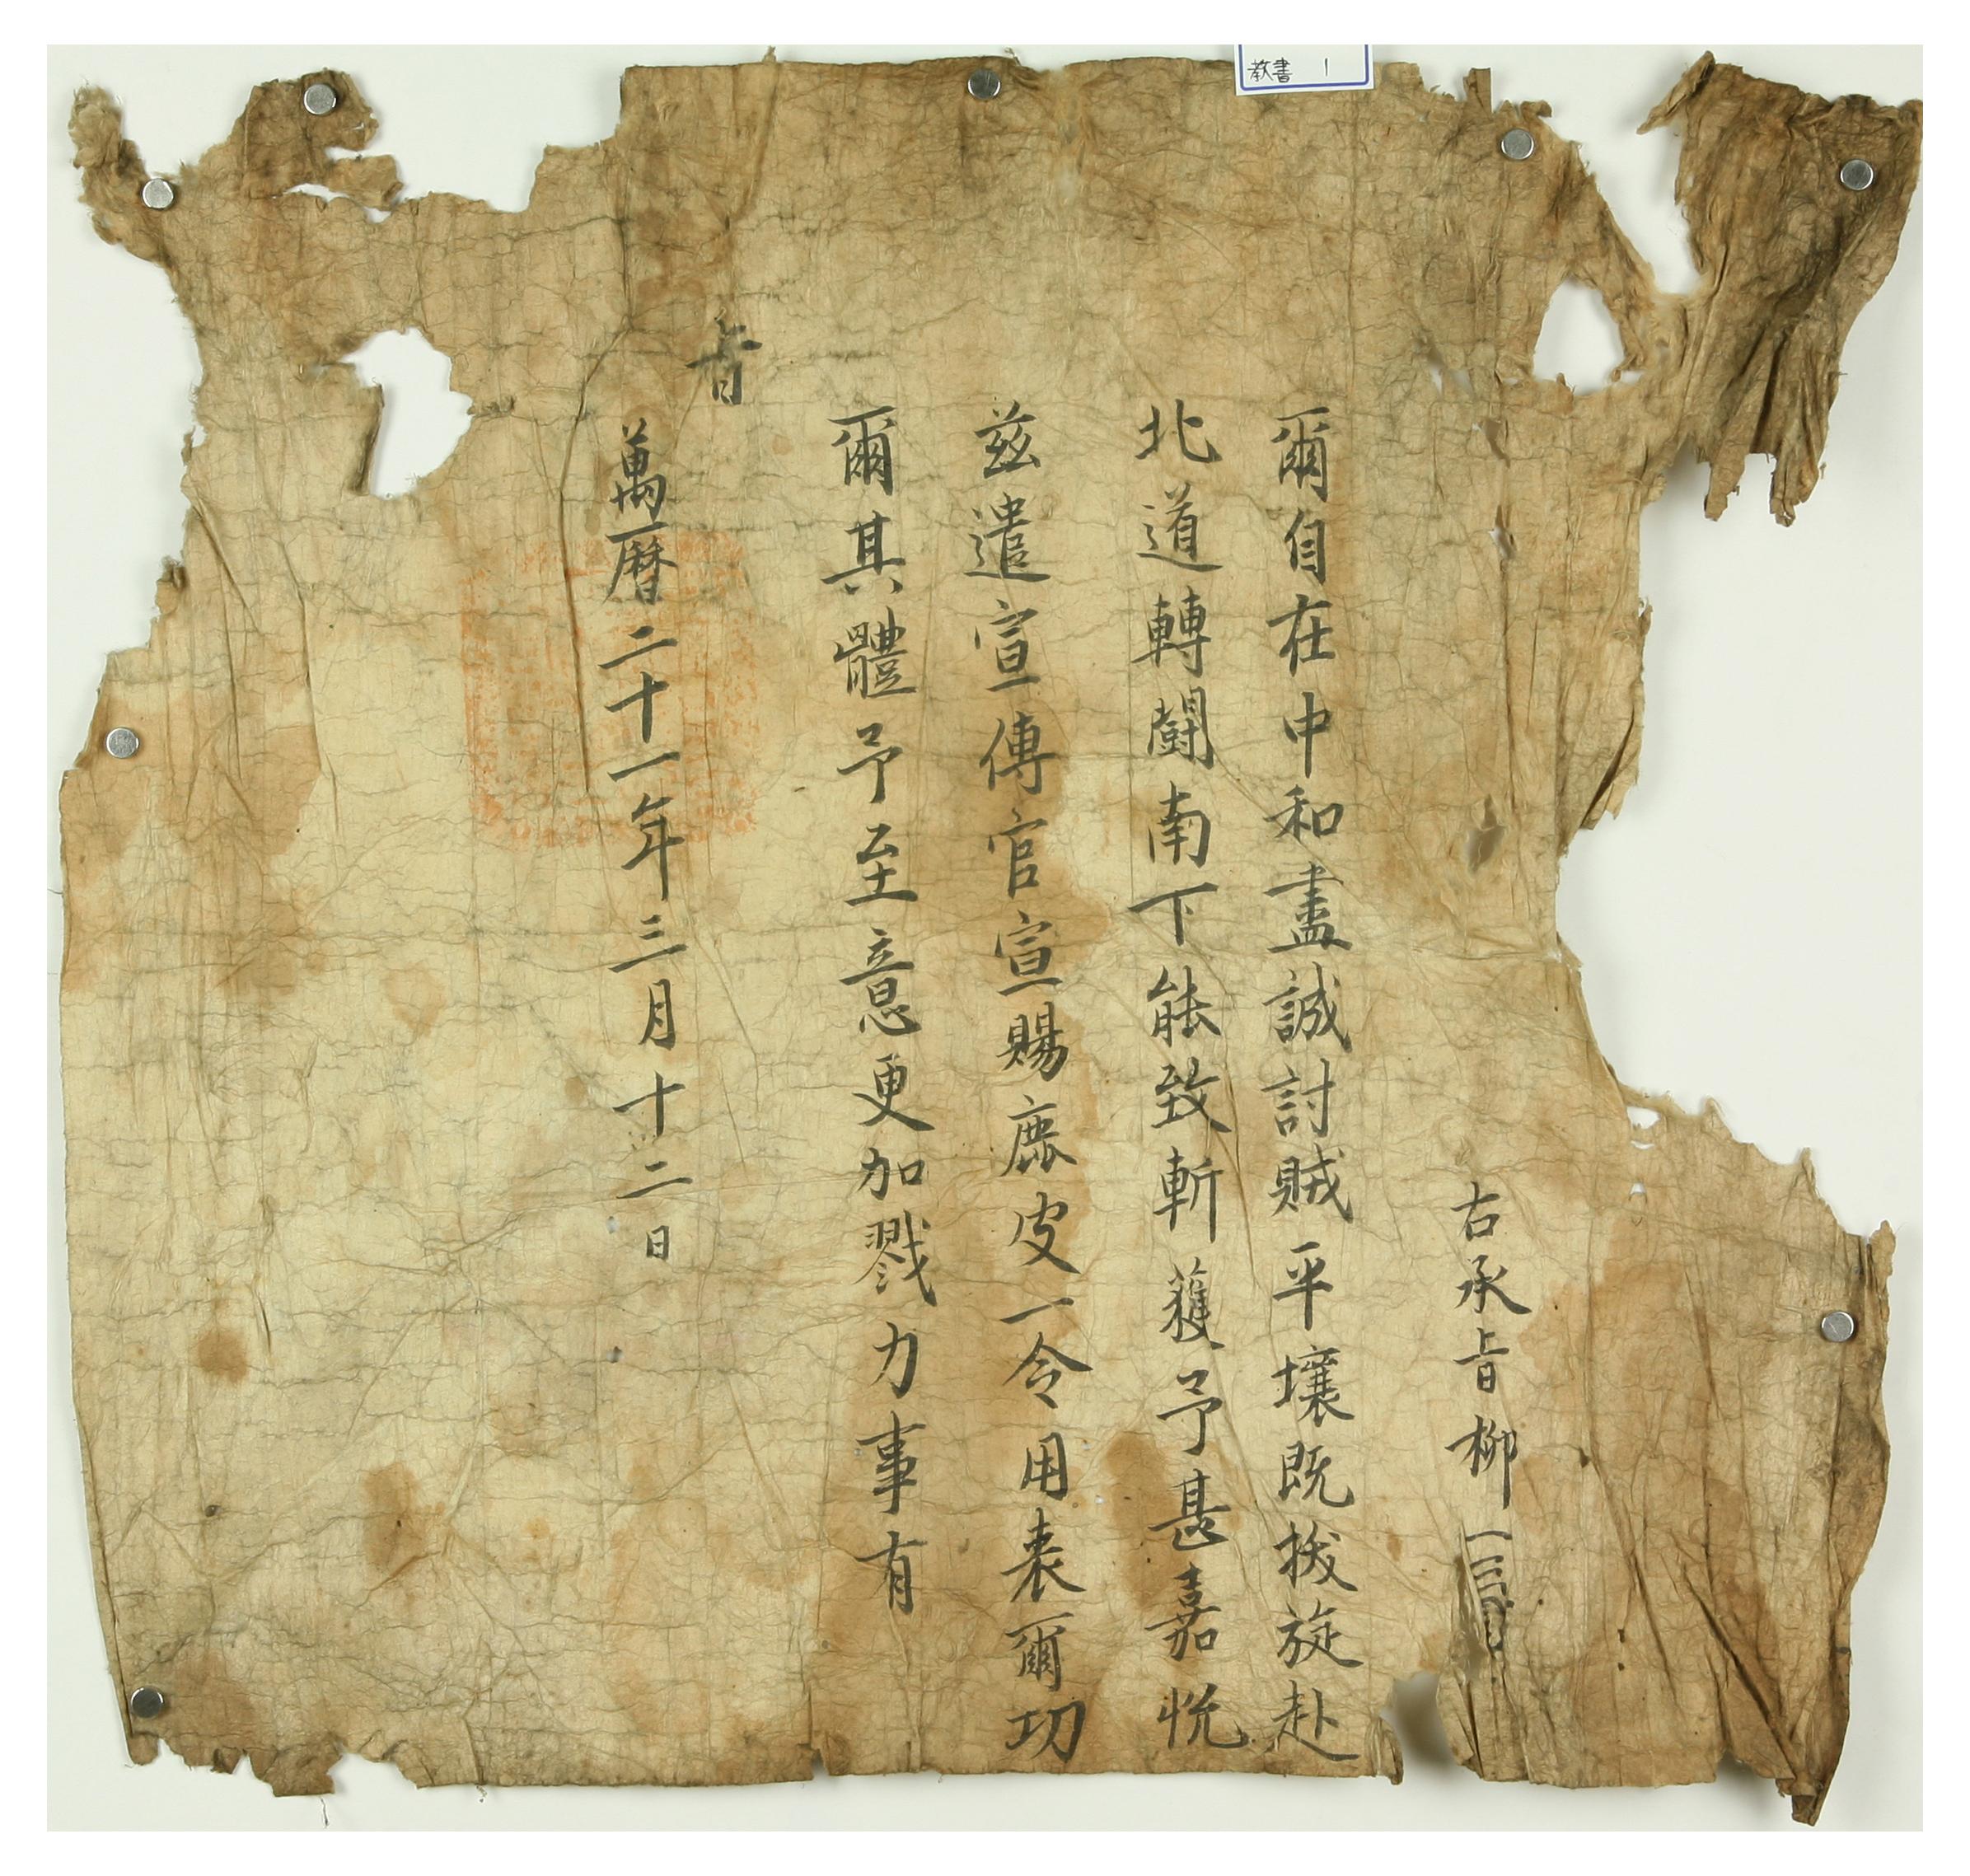 教書 1
右承旨柳
爾自在中和盡誠討賊平壤既拔旋赴
北道轉鬪南下能致斬獲予甚嘉悅
茲遣宣傳官宣賜鹿皮一令用表爾功
爾其體予至意更加戮力事有
旨
萬曆二十一年三月十二日